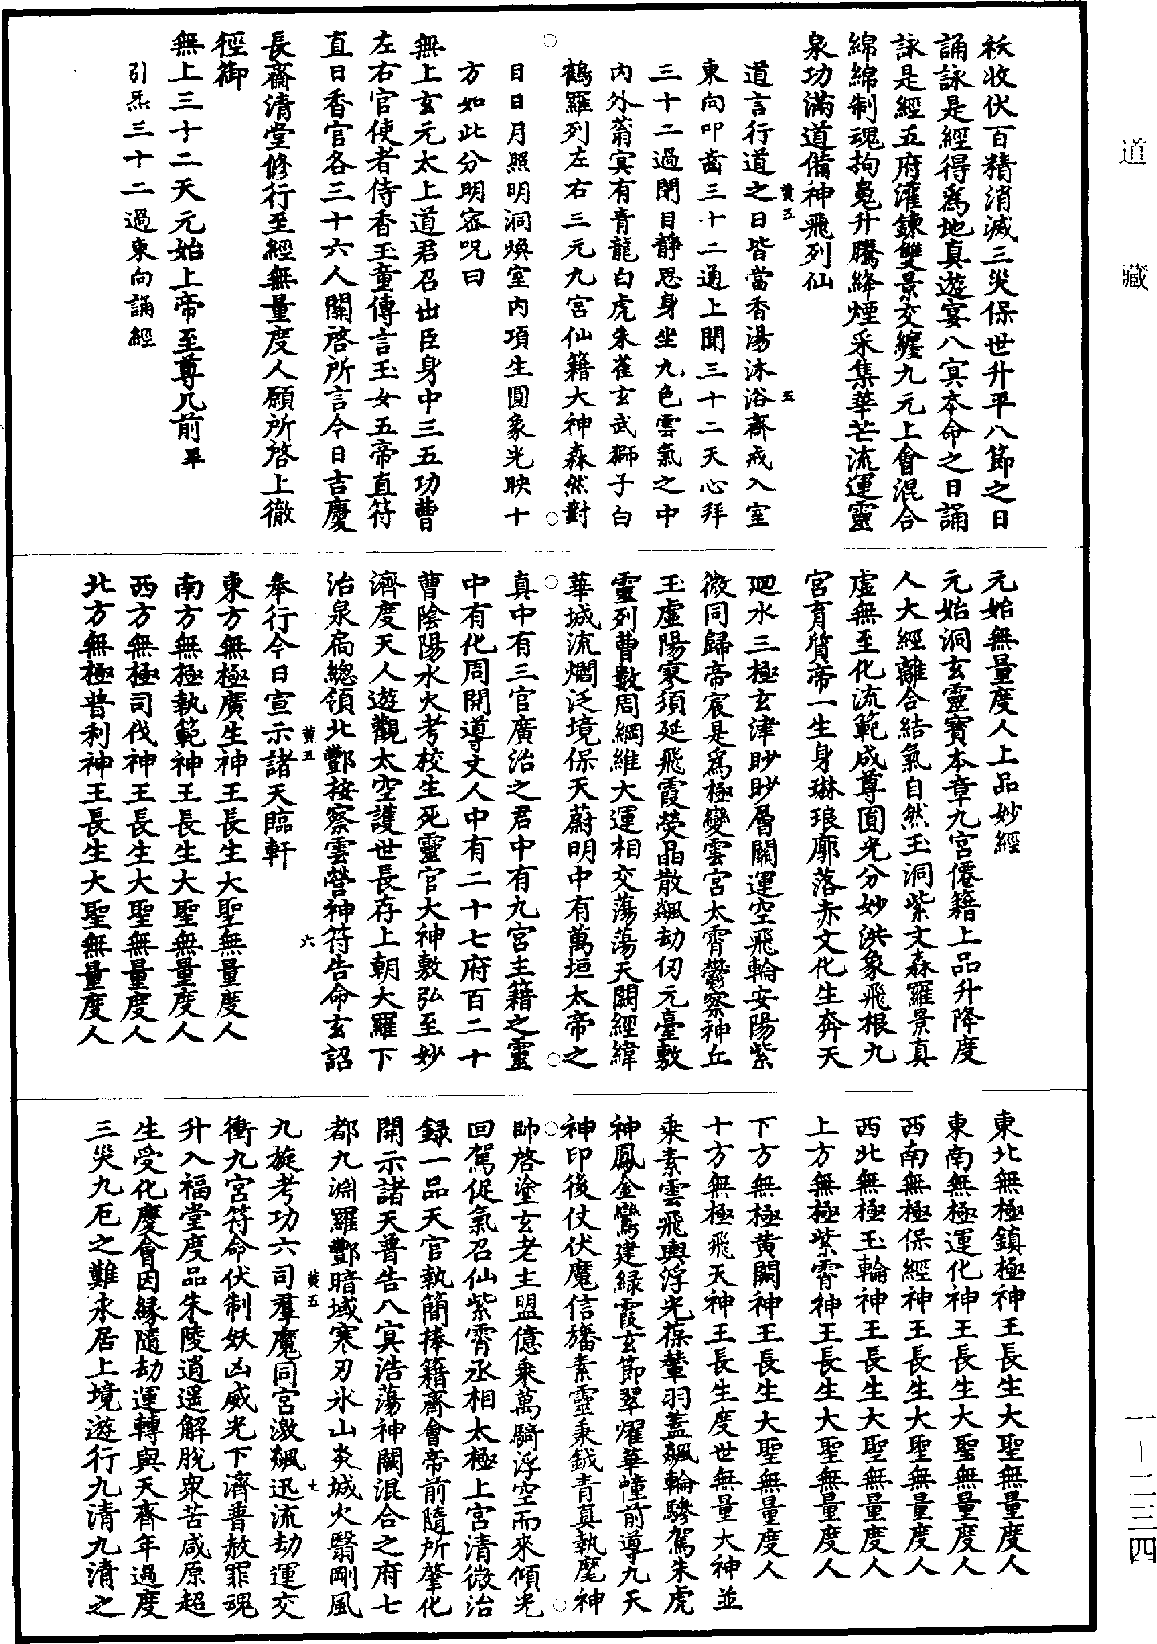 祅收伏百精消滅三災保世升平八節之日
誦詠是經得爲地真遊宴八冥本命之日誦
詠是經五府灌鍊雙景交纏九元上會混合
綿綿制魂拘䰟升騰絳煙采集華芒流運靈
泉功滿道備神飛列仙
黄五
五
道言行道之日皆當香湯沐浴齋戒入室
東向叩齒三十二通上聞三十二天心拜
三十二過閉目靜思身坐九色雲氣之中
内外蓊冥有青龍白虎朱雀玄武獅子白
鶴羅列左右三元九宮仙籍大神森然對
目日月照明洞煥室内項生圓象光映十
方如此分明密呪曰
無上玄元太上道君召出臣身中三五功曹
左右官使者侍香玉童傳言玉女五帝直符
直日香官各三十六人關啓所言今日吉慶
長齋清堂修行至經無量度人願所啓上徹
徑御
無上三十二天元始上帝至尊几前畢
引炁三十二過東向誦經
元始無量度人上品妙經
元始洞玄靈寶本章九宮僊籍上品升降度
人大經離合結氣自然玉洞紫文森羅景真
虛無至化流範成尊圓光分妙洪象飛根九
宮育質帝一生身琳琅廓落赤文化生奔天
廻水三極玄津眇眇層闕運空飛輪安陽紫
微同歸帝宸是爲極變雲宮太霄欝察神丘
玉虛陽寥須延飛霞熒晶散飆劫仞元臺敷
靈列曹數周綱維大運相交蕩蕩天關經緯
華城流爓泛境保天蔚明中有萬垣太帝之
真中有三官廣治之君中有九宮主籍之靈
中有化周開導文人中有二十七府百二十
曹陰陽水火考校生死靈官大神敷弘至妙
濟度天人遊觀太空護世長存上朝大羅下
治泉扃總領北酆按察雲營神符告命玄詔
黄五
六
奉行今日宣示諸天臨軒
東方無極廣生神王長生大聖無量度人
南方無極執範神王長生大聖無量度人
西方無極司伐神王長生大聖無量度人
北方無極普利神王長生大聖無量度人
東北無極鎮極神王長生大聖無量度人
東南無極運化神王長生大聖無量度人
西南無極保經神王長生大聖無量度人
西北無極玉輪神王長生大聖無量度人
上方無極紫霄神王長生大聖無量度人
下方無極黄闕神王長生大聖無量度人
十方無極飛天神王長生度世無量大神並
乘素雲飛輿浮光葆輦羽蓋飆輪驂駕朱虎
神鳳金鸞建緑霞玄節翠燿華幢前導九天
神印後仗伏魔信旛素靈秉鉞青真執麾神
帥啓塗玄老主盟億乘萬騎浮空而來傾光
回駕促氣召仙紫霄丞相太極上宮清微治
録一品天官執簡捧籍齋會帝前隨所肇化
開示諸天普告八冥浩蕩神關混合之府七
都九淵羅酆暗域寒刃氷山炎城火翳剛風
黄五
七
九旋考功六司羣魔同宮激飆迅流劫運交
衝九宮符命伏制妖凶威光下濟普赦罪魂
升入福堂度品朱陵逍遥解脱衆苦咸原超
生受化慶會因緣隨劫運轉與天齊年過度
三災九厄之難永居上境遊行九清九清之
道藏
一—二三四